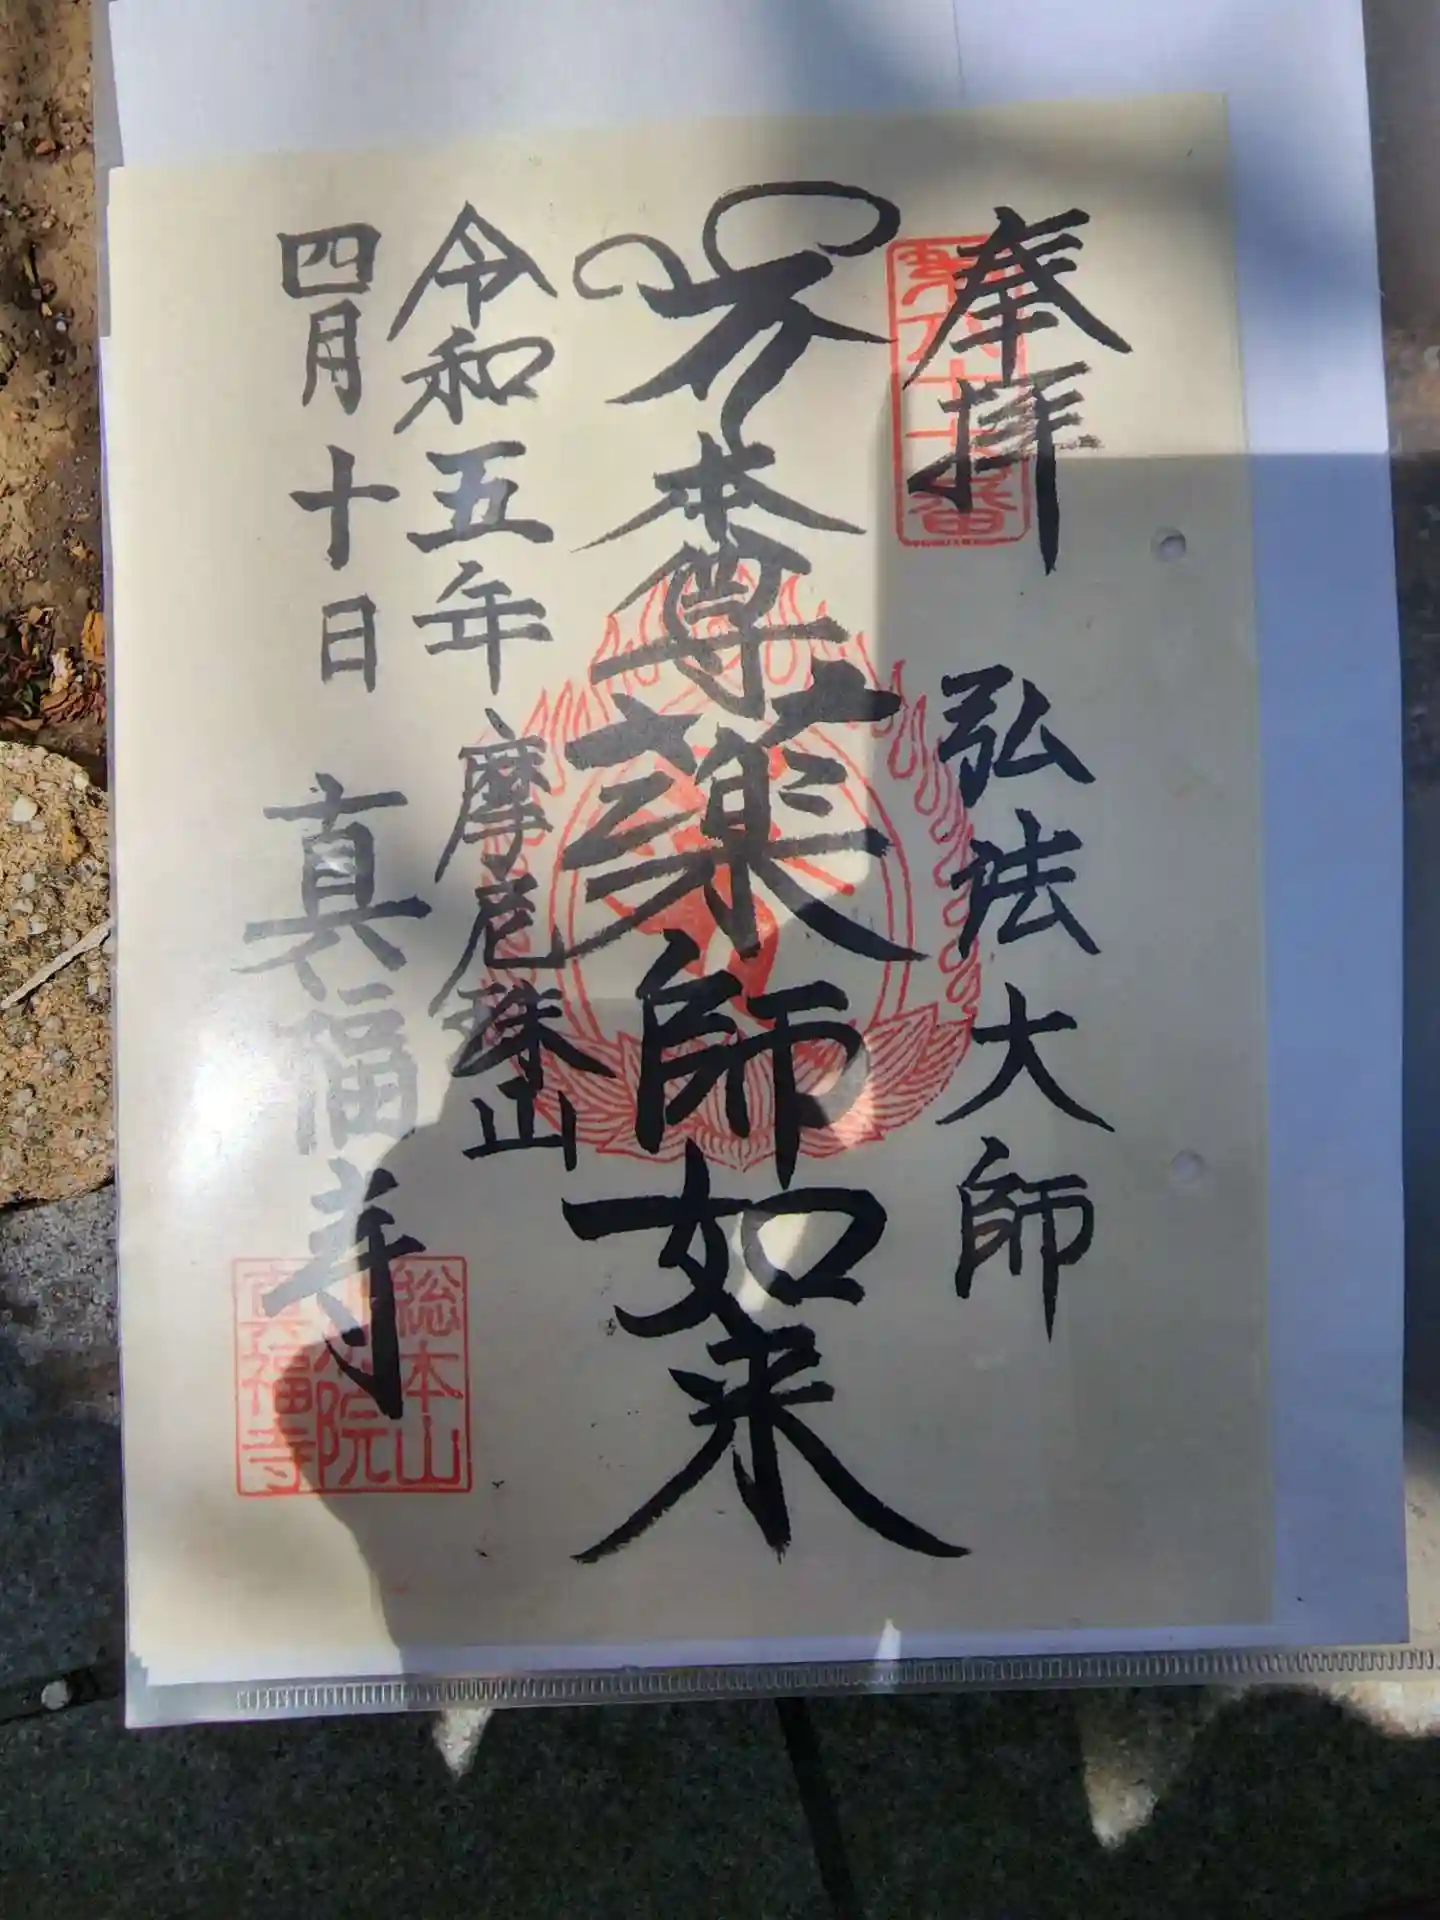 奉拝 弘法大師
本尊薬師如来
令和五年 摩尼珠山
四月十日 真福寺
総本山
院
真福寺